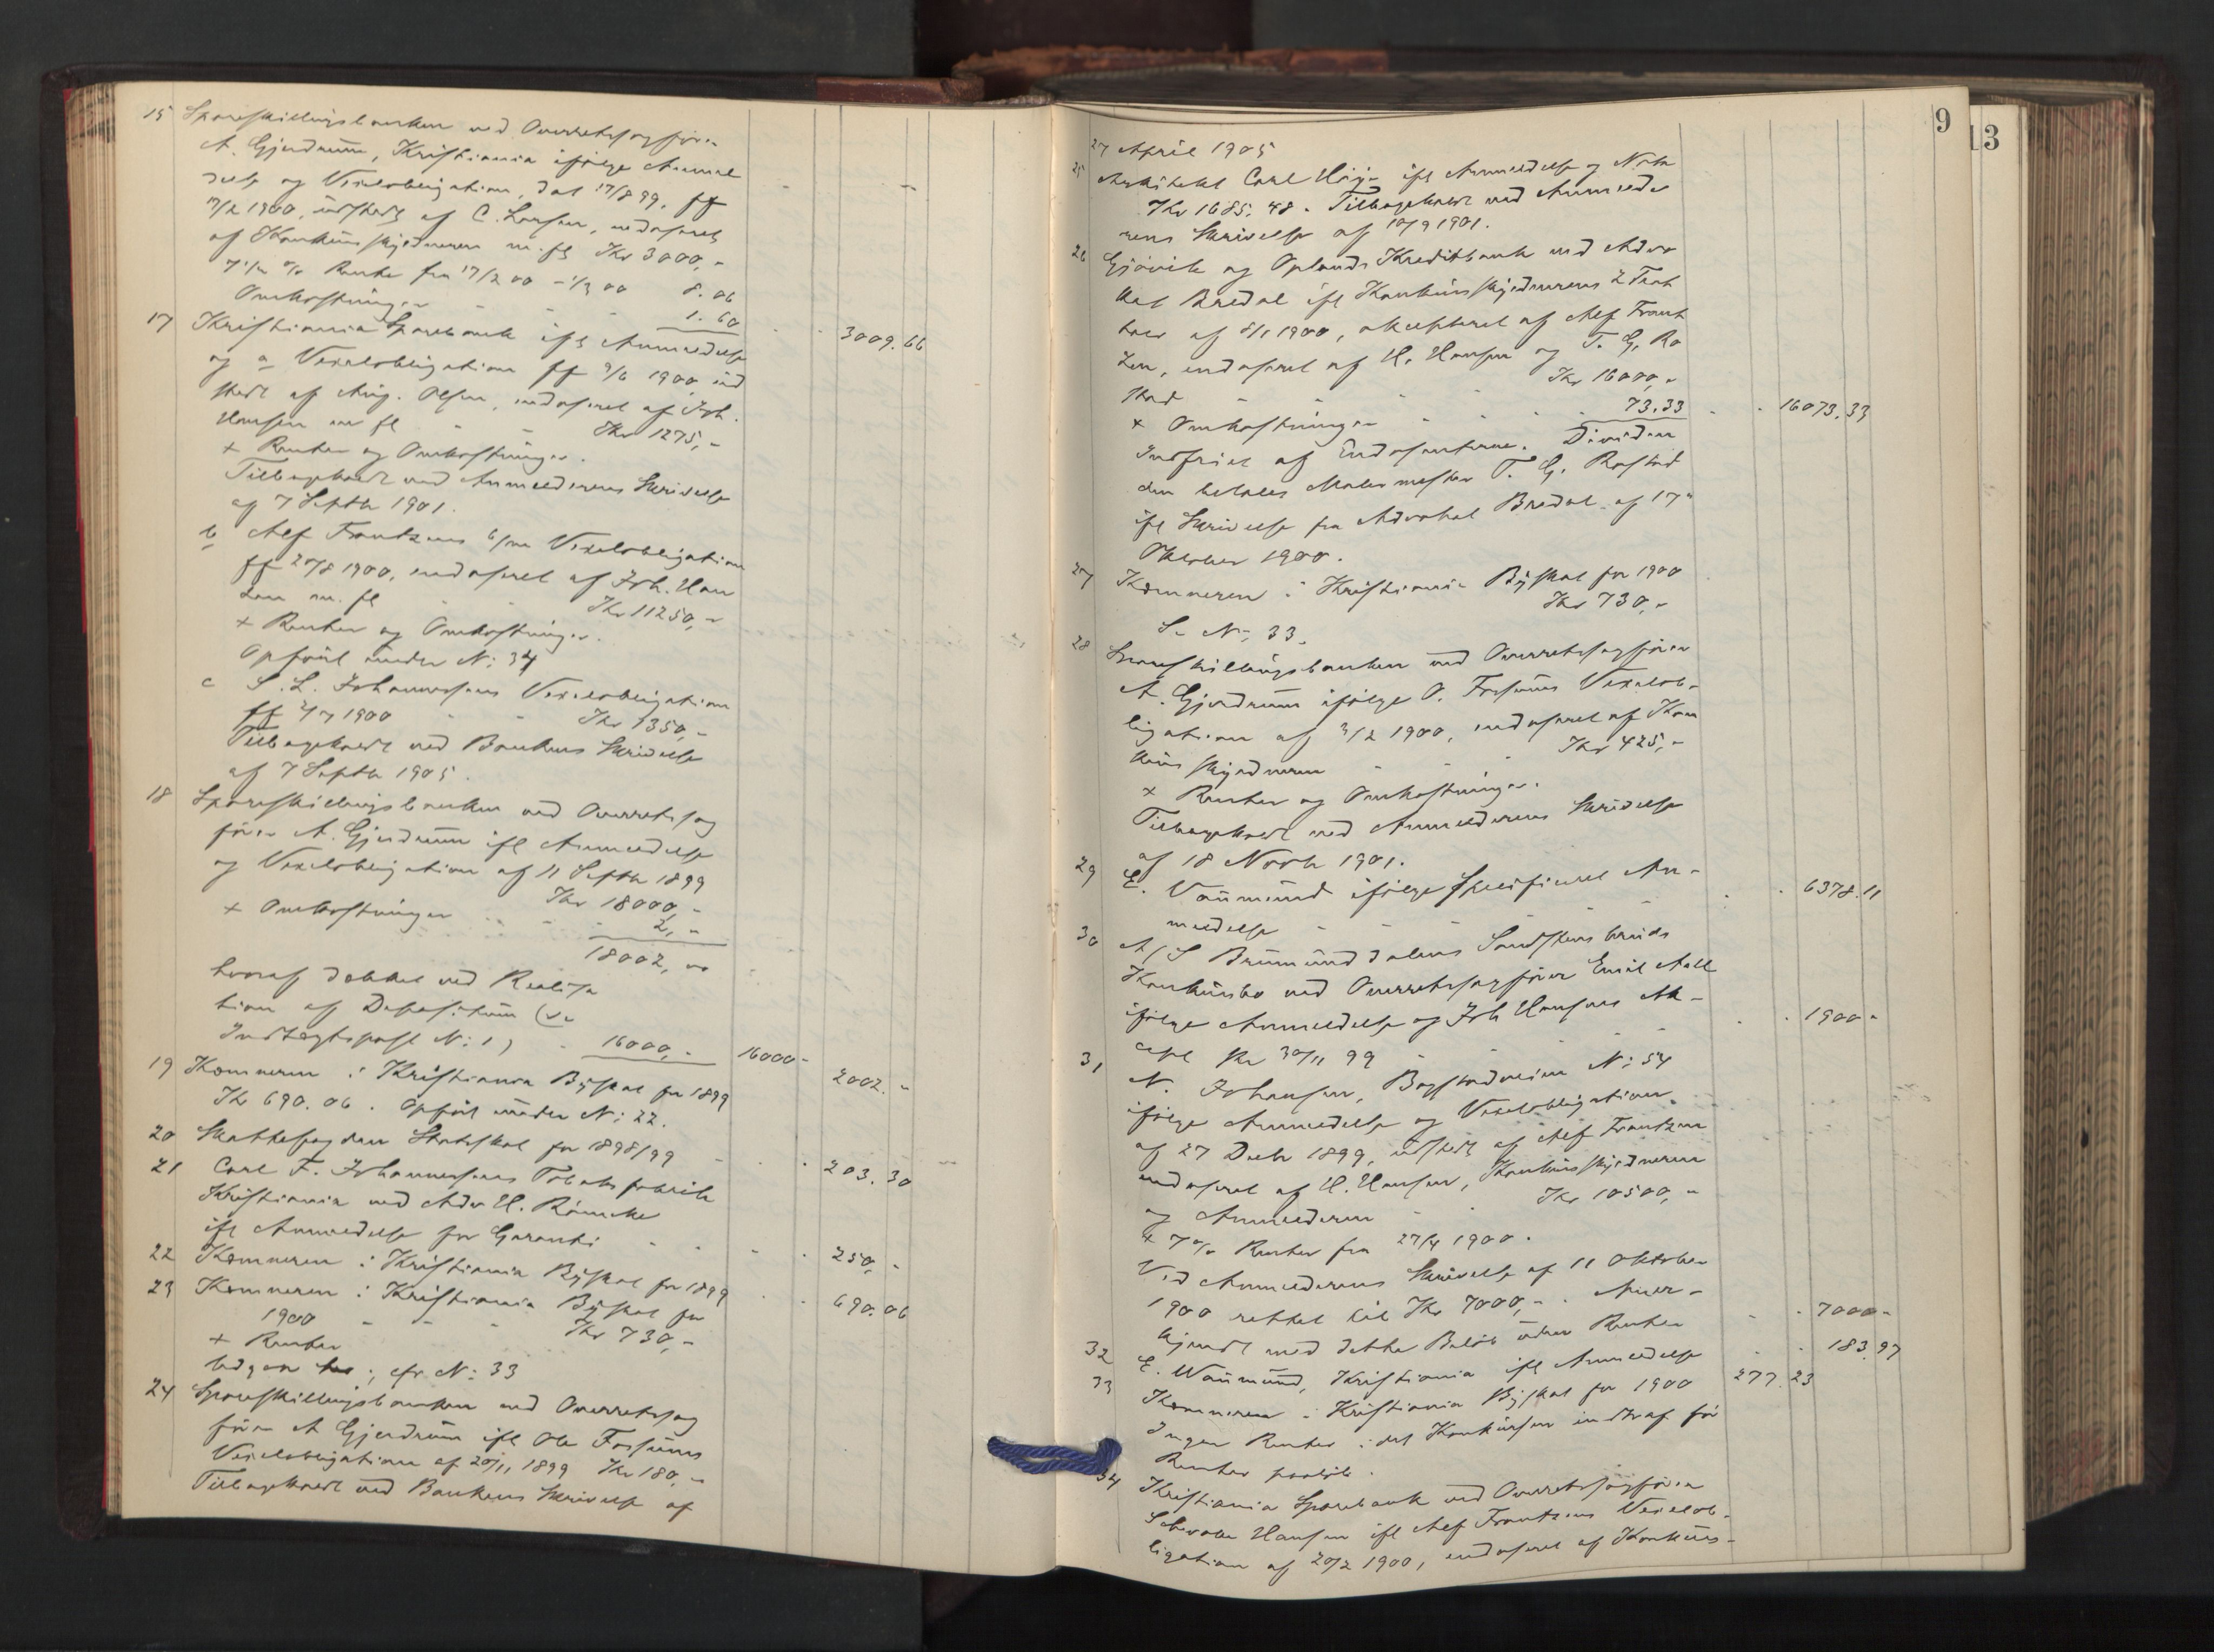 15 Spareskillingsbanken ved Overretssagfører
A. Gjerdrum, Kristiania ifølge Anmel
delse og Vexelobligation, dat 17/8 99, ff
17/2 1900, udstedt af C. Larsen, endosseret
af Konkursskyldneren m. fl Kr 3000,-
7 1/2 % Rente fra 17/2 00 - 1/3 00 8. 06
Omkostninger - - - 1. 60 - - 3009. 66
17 Kristiania Sparebank ifl Anmeldelse
og a Vexelobligation ff 9/6 1900 ud
stedt af Aug. Olsen, endosseret af Joh.
Hansen m fl - - Kr 1275,-
+ Renter og Omkostninger.
Tilbagekaldt ved Anmelderens Skrivelse
af 7 Septbr 1901.
b Alf Frantzens 6/m Vexelobligation
ff 20/8 1900, endosseret af Joh. Han
sen m. fl - - Kr 11250,-
+ Renter og Omkostninger.
Opført under N: 34
c S. L. Johannessens Vexelobligation
ff 1900 - - Kr 1350,-
Tilbagekaldt ved Bankens Skrivelse
af 7 Septbr 1905.
18 Spareskillingsbanken ved Overretssag
fører A. Gjerdrum ifl Anmeldelse
og Vexelobligation af 11 Septbr 1899
Kr 18000,-
+ Omkostninger - - - 2,-
18002,
hvoraf dækket ved Realisa
tion af Depositum (se
Indtægtspost N: 1) - 16000,- 16000- 2002.-
19 Kemneren i Kristiania Byskat for 1899
Kr 690. 06. Opført under N: 22.
20 Skattefogden Statsskat for 1898/99 - - 203. 30
21 Carl F. Johannessens Tobaksfabrik
Kristiania ved Adv H. Röncke
ifl Anmeldelse for Garanti - - - - 250,-
22 Kemneren i Kristiania Byskat for 1899 - - 690. 06
23 Kemneren i Kristiania Byskat for
1900 - - - Kr 730,-
+ Renter
Udgaar ; cfr N: 33
24 Spareskillingsbanken ved Overretssag
fører A Gjerdrum ifl Ole Fossums
Vexelobligation af 20/11 1899 Kr 180,-
Tilbagekaldt ved Bankens Skrivelse af
9
13
27 April 1905
25 Arkitekt Carl Høyer ifl Anmeldelse og Nota
Kr 1685, 48. Tilbagekaldt ved Anmelde
rens Skrivelse af 10/9 1901.
26 Gjøvik og Oplands Kreditbank ved Advo
kat Bredal ifl Konkursskyldnerens 2 Trat
ter af 8/1 1900, akcepteret af Alf Frant
zen, endosseret af H. Hansen og T. G. Ro
stad - - - Kr 16000,-
+ Omkostninger - - - 73.33 - - 16073. 33
Indfriet af Endossenterne. Dividen
den betales Malermester T. G. Rostad
ifl Skrivelse fra Advokat Bredal af 17"
Oktober 1900.
27 Kemneren i Kristiania Byskat for 1900
Kr 730,-
Se N: 33.
28 Spareskillingsbanken ved Overretssagfører
A. Gjerdrum ifølge O. Fossums Vexelob-
ligation af 3/2 1900, endosseret af Kon
kursskyldneren - - Kr 425,-
+ Renter og Omkostninger.
Tilbagekaldt ved Anmelderens Skrivelse
af 18 Novbr 1901.
29 E. Vaumund ifølge specificeret An-
meldelse - - - - - 6378. 11
30 A/S Brumunddalens Sandstensbruds
Konkursbo ved Overretssagfører Emil Aall
ifølge Anmeldelse og Joh Hansens Ak-
cept pr 30/11 99 - - - - 1900-
31 N. Johansen, Bogstadveien N: 54
ifølge Anmeldelse og Vexelobligation
af 27 Decbr 1899, udstedt af Alf Frantzen
endosseret af H. Hansen, Konkursskyldneren
og Anmelderen - - Kr 10500,-
+ 7 % Renter fra 27/4 1900.
Ved Anmelderens Skrivelse af 11 Oktober
1900 rettet til Kr 7000,-. Aner-
kjendt med dette Beløb uden Renter - - 7000-
32 E. Waumund, Kristiania ifl Anmeldelse - - 183. 97
33 Kemneren i Kristiania Byskat for 1900 277. 23
Ingen Renter i det Konkursen indtraf før
Renter paaløb.
34 Kristiania Sparebank ved Overretssagfører
Schwabe Hansen ifl Alf Frantzens Vexelob-
ligation af 20/2 1900, endosseret af Konkurs-